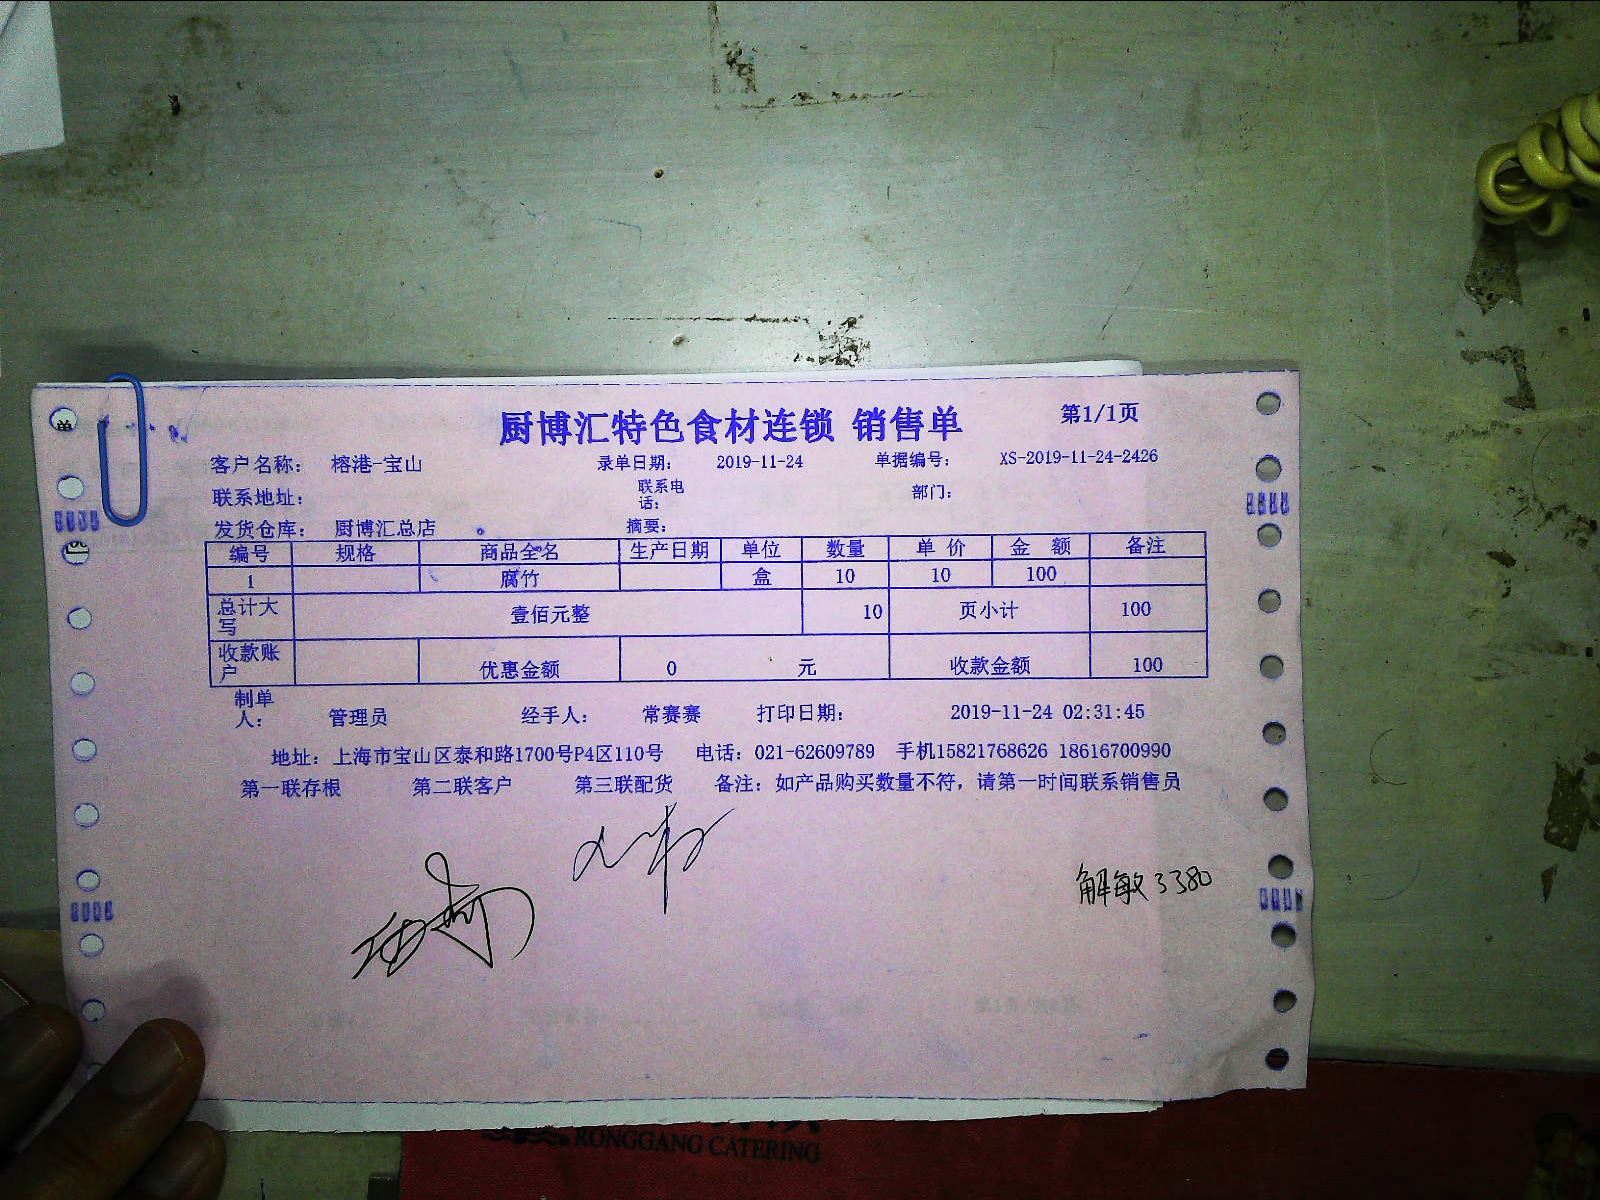 厨博汇特色食材连锁 销售单 第1/1页
客户名称： 榕港-宝山 录单日期： 2019-11-24 单据编号： XS-2019-11-24-2426
联系地址： 联系电话： 部门：
发货仓库： 厨博汇总店 摘要：
编号 规格 商品全名 生产日期 单位 数量 单 价 金 额 备注
1 腐竹 盒 10 10 100
总计大写 壹佰元整 10 页小计 100
收款账户 优惠金额 0 元 收款金额 100
制单人： 管理员 经手人： 常赛赛 打印日期： 2019-11-24 02:31:45
地址：上海市宝山区泰和路1700号P4区110号 电话：021-62609789 手机15821768626 18616700990
第一联存根 第二联客户 第三联配货 备注：如产品购买数量不符，请第一时间联系销售员
解敏 3380
RONGGANG CATERING